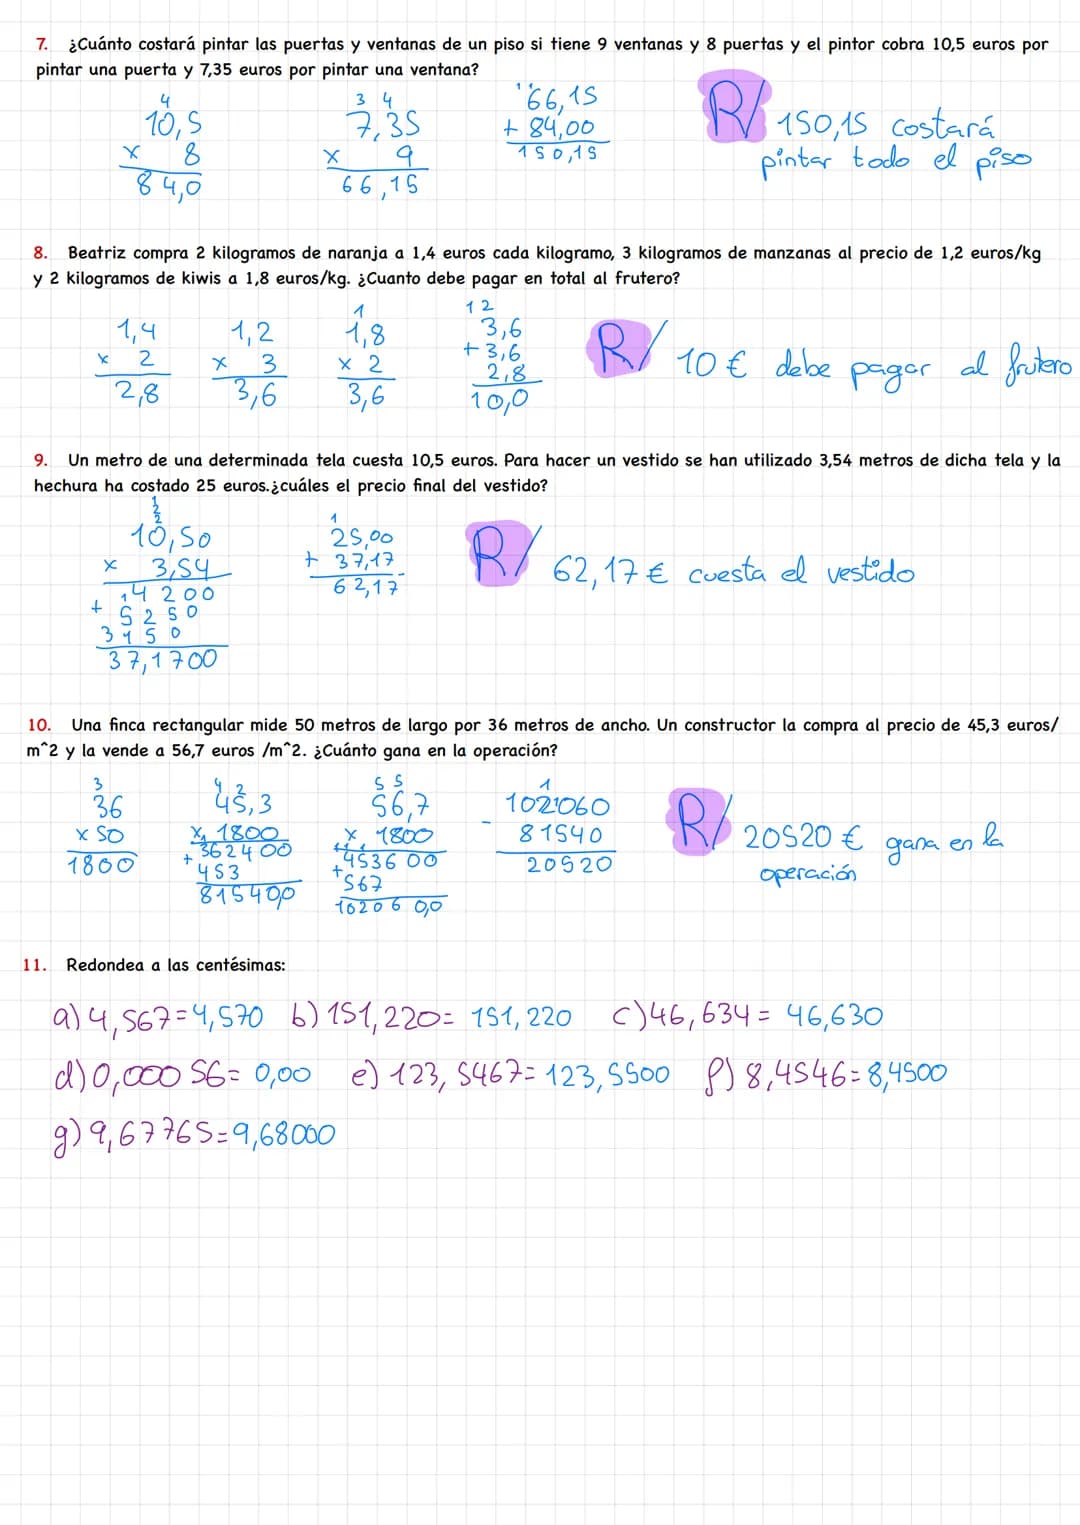 7. ¿Cuánto costará pintar las puertas y ventanas de un piso si tiene 9 ventanas y 8 puertas y el pintor cobra 10,5 euros por
pintar una puerta y 7,35 euros por pintar una ventana?
4
10,5
x 8
84,0
3 4
7,35
x 9
66,15
1 1
66,15
+ 84,00
150,15
R/ 150,15 costará
pintar todo el piso
8. Beatriz compra 2 kilogramos de naranja a 1,4 euros cada kilogramo, 3 kilogramos de manzanas al precio de 1,2 euros/kg
y 2 kilogramos de kiwis a 1,8 euros/kg. ¿Cuanto debe pagar en total al frutero?
1,4
x 2
2,8
1,2
x 3
3,6
1
1,8
x 2
3,6
1 2
3,6
+ 3,6
2,8
10,0
R/ 10 € debe pagar al frutero
9. Un metro de una determinada tela cuesta 10,5 euros. Para hacer un vestido se han utilizado 3,54 metros de dicha tela y la
hechura ha costado 25 euros.¿cuáles el precio final del vestido?
1
2
2
10,50
x 3,54
1 4 200
+ 5250
3150
37,1700
1
25,00
+ 37,17
62,17
R/ 62,17 € cuesta el vestido
10. Una finca rectangular mide 50 metros de largo por 36 metros de ancho. Un constructor la compra al precio de 45,3 euros/
m^2 y la vende a 56,7 euros /m^2. ¿Cuánto gana en la operación?
3
36
x 50
1800
4 2
45,3
x 1800
1
+ 362400
453
815400
5 5
56,7
x 1800
1 1 1
+ 453600
567
102060,0
1
102060
- 81540
20520
R/ 20520 € gana en la
operación
11. Redondea a las centésimas:
a) 4,567=4,570 b) 151,220= 151,220 c) 46,634= 46,630
d) 0,00056= 0,00 e) 123,5467= 123,5500 f) 8,4546=8,4500
g) 9,67765=9,68000